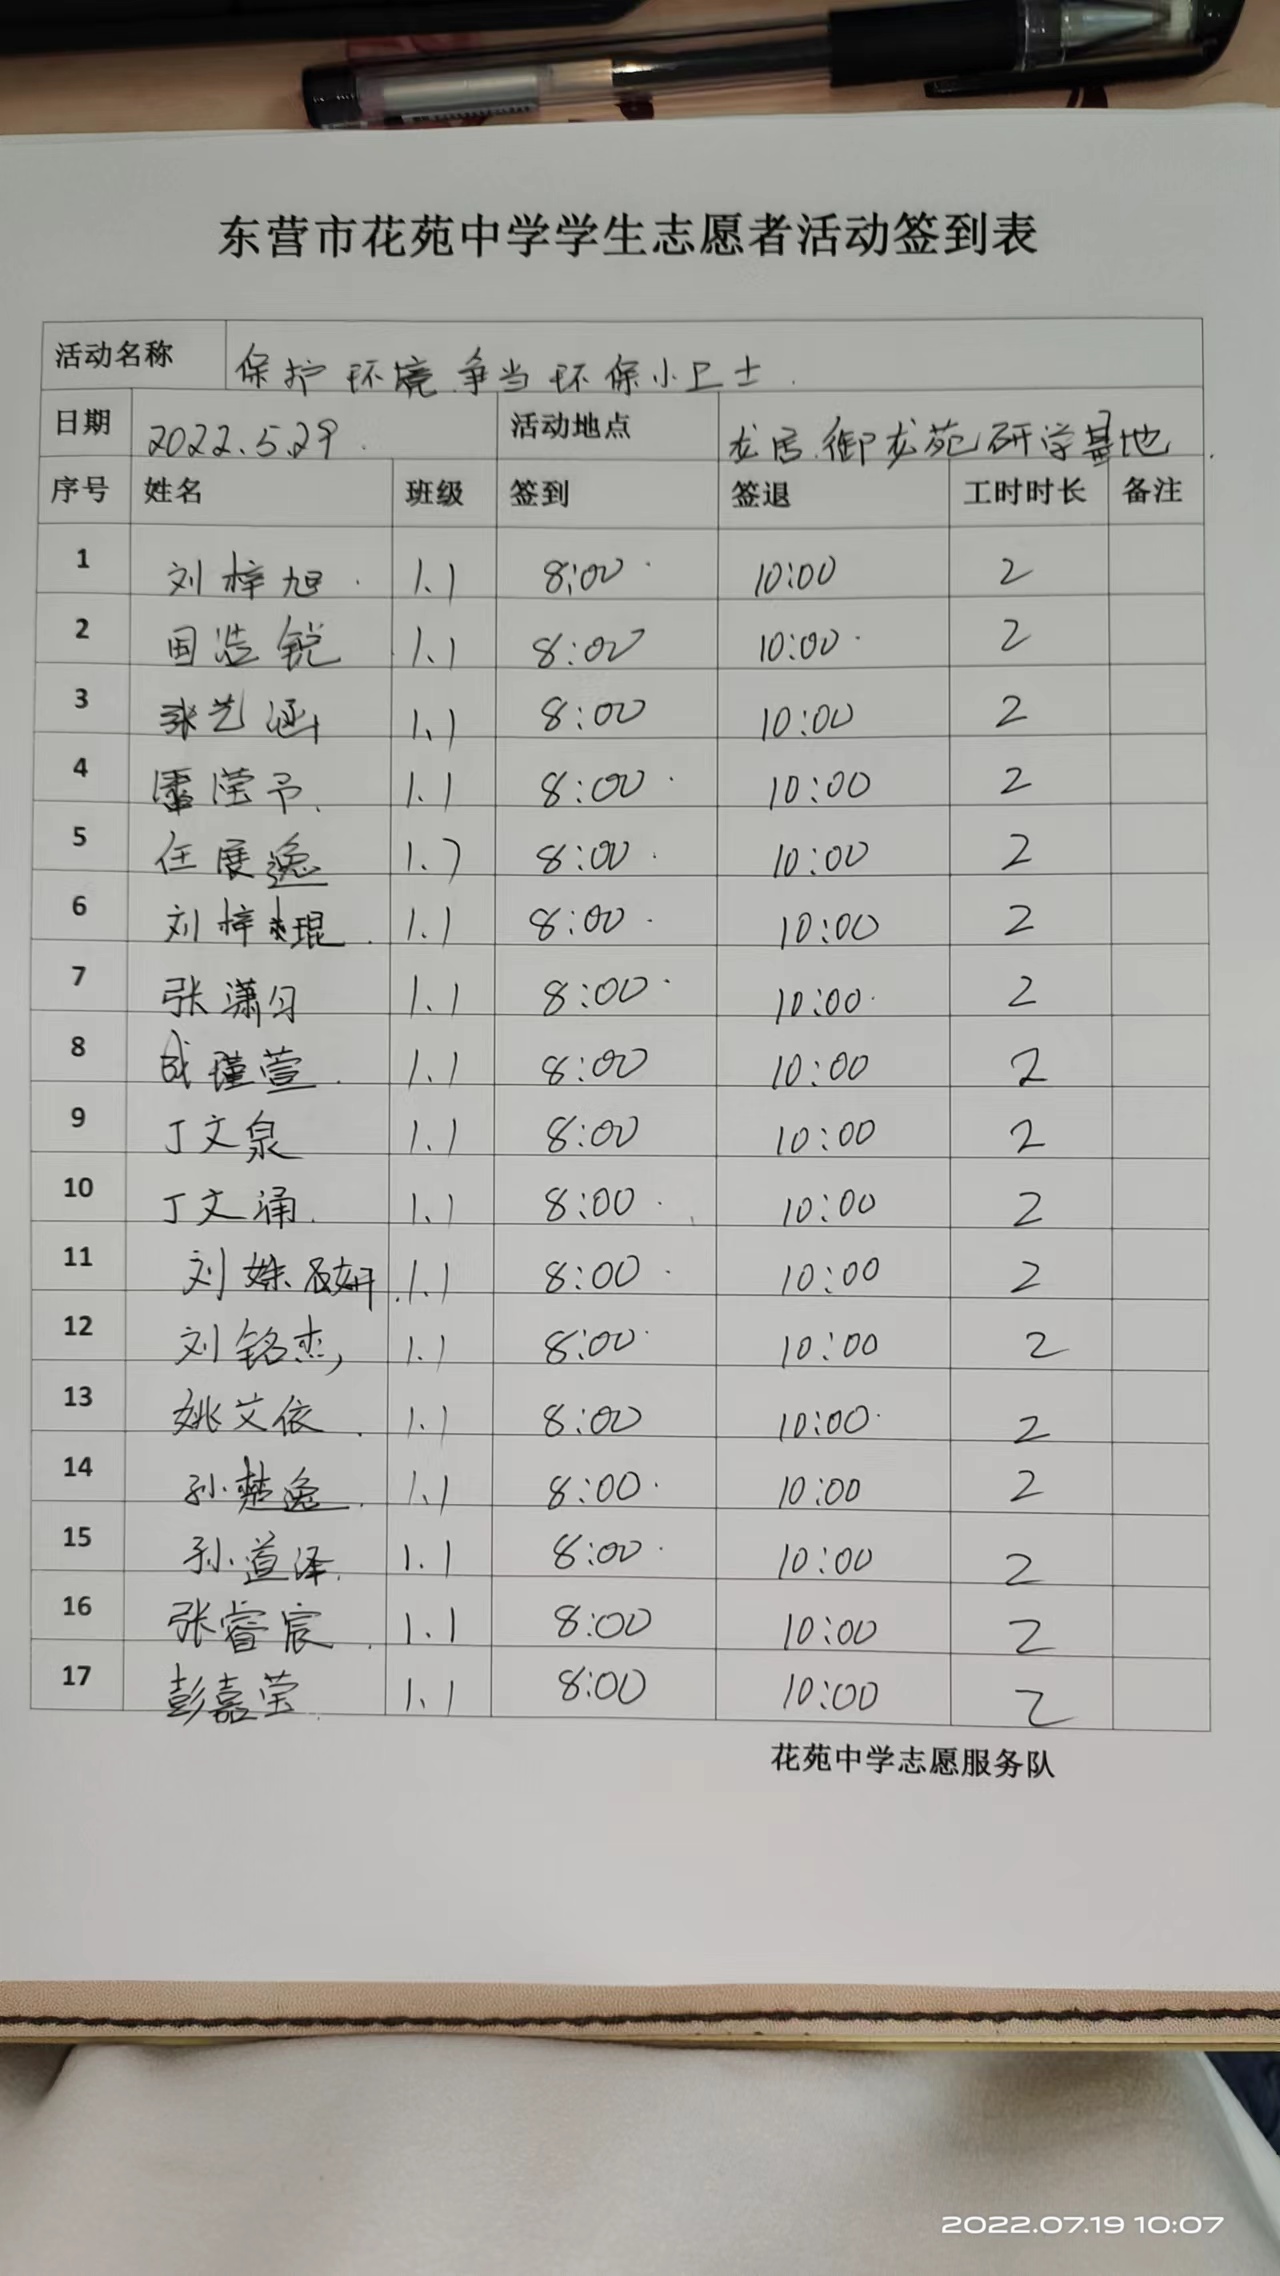 东营市花苑中学学生志愿者活动签到表
活动名称 保护环境争当环保小卫士
日期 2022.5.29. 活动地点 龙居.御龙苑研学基地
序号 姓名 班级 签到 签退 工时时长 备注
1 刘梓旭 1.1 8:00 10:00 2
2 田浩锐 1.1 8:00 10:00 2
3 张艺涵 1.1 8:00 10:00 2
4 潘滢予 1.1 8:00 10:00 2
5 任展逸 1.7 8:00 10:00 2
6 刘梓琨 1.1 8:00 10:00 2
7 张潇匀 1.1 8:00 10:00 2
8 成瑾萱 1.1 8:00 10:00 2
9 丁文泉 1.1 8:00 10:00 2
10 丁文涌 1.1 8:00 10:00 2
11 刘姝妍 1.1 8:00 10:00 2
12 刘铭杰 1.1 8:00 10:00 2
13 姚艾依 1.1 8:00 10:00 2
14 孙楚逸 1.1 8:00 10:00 2
15 孙道泽 1.1 8:00 10:00 2
16 张睿宸 1.1 8:00 10:00 2
17 彭嘉莹 1.1 8:00 10:00 2
花苑中学志愿服务队
2022.07.19 10:07